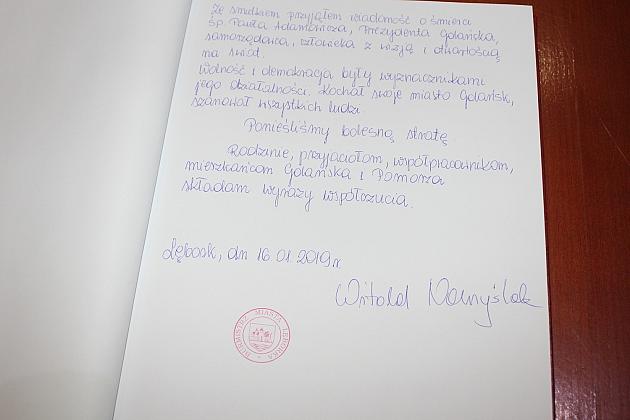 Ze smutkiem przyjąłem wiadomość o śmierci
śp. Pawła Adamowicza, Prezydenta Gdańska,
samorządowca, człowieka z wizją i otwartością
na świat.
Wolność i demokracja były wyznacznikami
jego działalności. Kochał swoje miasto Gdańsk,
szanował wszystkich ludzi.
Ponieśliśmy bolesną stratę.
Rodzinie, przyjaciołom, współpracownikom,
mieszkańcom Gdańska i Pomorza
składam wyrazy współczucia.
Lębork, dn 16.01.2019 r.
Witold Namyślak
BURMISTRZ MIASTA LĘBORKA